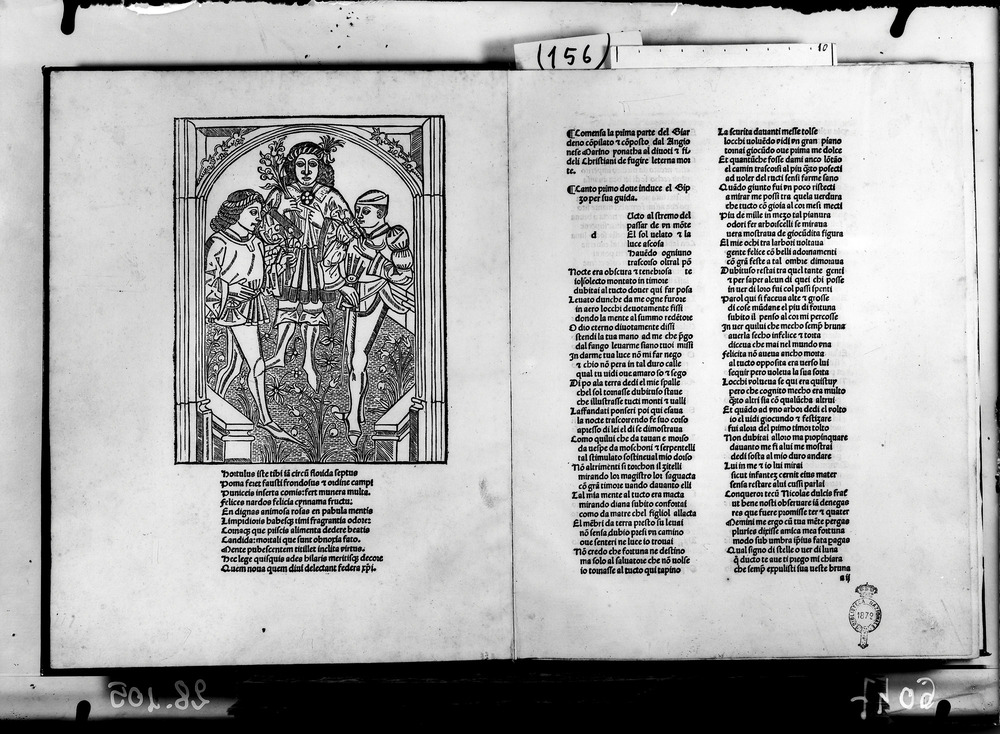 (156)
10
Hortulus iste tibi iā circū florida septus
Poma feret fausti frondosus ⁊ ordine campi
Puniceis inserta comis: fert munera multa.
Felices nardos felicia cynnama fructu;
En dignas animosa rosas en pabula mentis
Limpidioris habesq; timi fragrantis odore:
Consq; que priscis alimenta dedere beatis
Candida: mortali que sunt obnoxia fato.
Mente pubescentem titillet inclita virtus.
Hec lege quisquis ades hilaris meritisq; decore
Quem noua quem diui delectant federa xp̄i.
¶Comensa la prima parte del Giar
deno cōpilato ⁊ cōposto dal Angio
nese Marino yonatha al diuoti ⁊ fi⸗
deli Christiani de fugire leterna mor
te.
¶Canto primo doue induce el Gip
zo per sua guida.
d
Ucto al stremo del
passar de vn mōte
El sol uelato ⁊ la
luce ascosa
Hauēdo ogniuno
trascorso oltral pō
Nocte era obscura ⁊ tenebrosa te
io solecto montato in timore
dubitai al tucto douer qui far posa
Leuato dunche da me ogne furore
in aero locchi deuotamente fissi
dondo la mente al summo redētore
O dio eterno diuotamente dissi
stendi la tua mano ad me che p̄go
dal fango leuarme siano tuoi missi
In darme tua luce nō mi far nego
⁊ chio nō pera in tal duro calle
qual tu uidi oue amaro so ⁊ sego
Di po ala terra dedi el mie spalle
chel sol tornasse dubitoso staue
che illustrasse tucti monti ⁊ ualli
Laffandati ponseri poi qui esaua
la nocte trascorrendo fe suo corso
apresso di lei el di se dimostraua
Como quilui che da tauan e morso
da uespe da moschoni ⁊ serpentelli
tal stimulato sostineual mio dorso
Nō altrimenti si torchon il zitelli
mirando lor magistro lor saguacta
cō grā timore uando dauante elli
Tal mia mente al tucto era macta
mirando diana subito confortai
como da matre chel figliol allacta
El mēbri da terra presto su leuai
nō sensa dubio presi vn camino
oue senteri ne luce io trouai
Nō credo che fortuna ne destino
ma solo al saluatore che nō uolse
io tornasse al tucto qui tapino
La scurita dauanti messe tolse
locchi voluēdo vidi vn gran piano
tornai giocūdo oue prima me dolce
Et quantūche fosse dami anco lōtāo
el camin trascorsi al piu q̄sto posecti
ad uoler del tucti sensi farme sano
Quādo giunto fui vn poco ristecti
a mirar me possi tra quela uerdura
che tucto cō gioia al cor mesi mecti
Piu de mille in mezo tal pianura
odori fer arborscelli se miraua
uera mostraua de giocūdita figura
El mie ochi tra larbori uoltaua
gente felice cō belli adornamenti
cō grā festa a tal ombre dimoraua
Dubitoso restai tra quel tante genti
⁊ per saper alcun di quei chi fosse
in uer di loro fui col passi spenti
Parol qui si faceua alte ⁊ grosse
di cose mūdane el piu di fortuna
subito il penso al cor mi percosse
In uer quilui che mecho semp̄ bruna
auerla secho infelice ⁊ torta
diceua che mai nel mundo vna
Felicita nō aueua ancho morta
al tucto opposita era uerso lui
sequir pero uoleua la sua sorta
Locchi volueua se qui era quistuy
pero che cognito mecho era multo
q̄sto altri sia cō qualūcha altrui
Et quādo ad vno arbor dedi el volto
io el uidi giocundo ⁊ festigare
fui alora del primo timor tolto
Non dubitai alloro ma propinquare
dauanto me fi a lui me mostrai
dedi sosta al mio duro andare
Lui in me ⁊ io lui mirai
sicut infantez cernit eius mater
sensa restare alui cussi parlai
Conqueror tecū Nicolae dulcis frat̄
ut bene nosti obseruare iā denegas
res que fuere promisse ter ⁊ quater
Memini me ergo cū tua mēte pergas
pluries dixisse amica mea fortuna
modo sub umbra ipsius fata pagas
Qual signo di stelle o uer di luna
q̄ ducto te aue ti prego mi chiara
che semp̄ expulisti sua ueste bruna
a ij
BIBLIOTECA NAZIONALE
1879
28.105